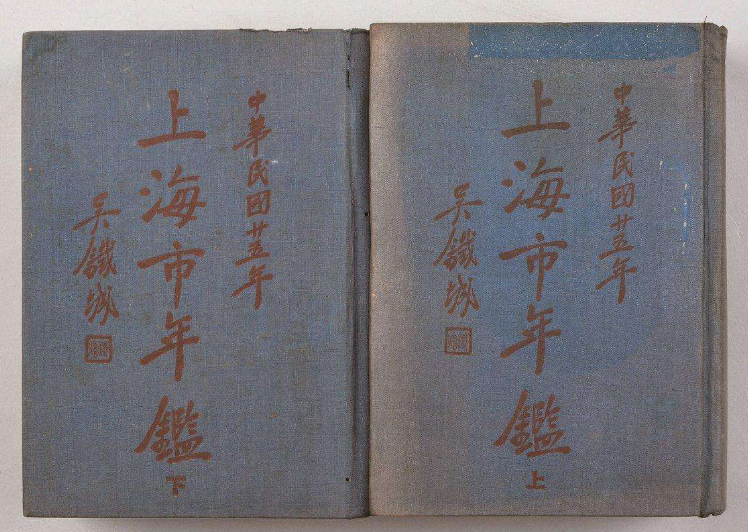 中華民國廿五年
上海市年鑑
下
吳鐵城
中華民國廿五年
上海市年鑑
上
吳鐵城